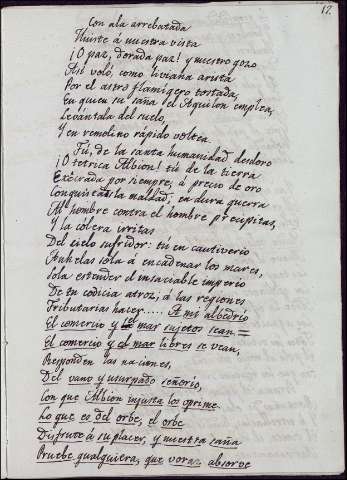 12.
Con ala arrebatada
Huiste á nuestra vista
¡O paz, dorada paz! y nuestro gozo
Asi voló, como liviana arista
Por el astro flamigero tostada,
En quien su saña el Aquilon emplea,
Levántala del suelo,
Y en remolino rápido voltea.
Tú, de la santa humanidad desdoro
¡O tetrica Albion! tú de la tierra
Execrada por siempre, á precio de oro
Conquistas la maldad; en dura guerra
Al hombre contra el hombre precipitas,
Y la cólera irritas
Del cielo sufridor: tú en cautiverio
Anhelas sola á encadenar los mares,
Sola estender el insaciable imperio
De tu codicia atroz, á las regiones
Tributarias hacer..... A mi albedrío
El comercio y mar sujetos sean.=
El comercio y el mar libres se vean,
Responden las naciones,
Del vano y usurpado señorio,
Con que Albion injusta los oprime.
Lo que es del orbe, el orbe
Disfrute á su placer, y nuestra saña
Pruebe qualquiera, que voraz absorve